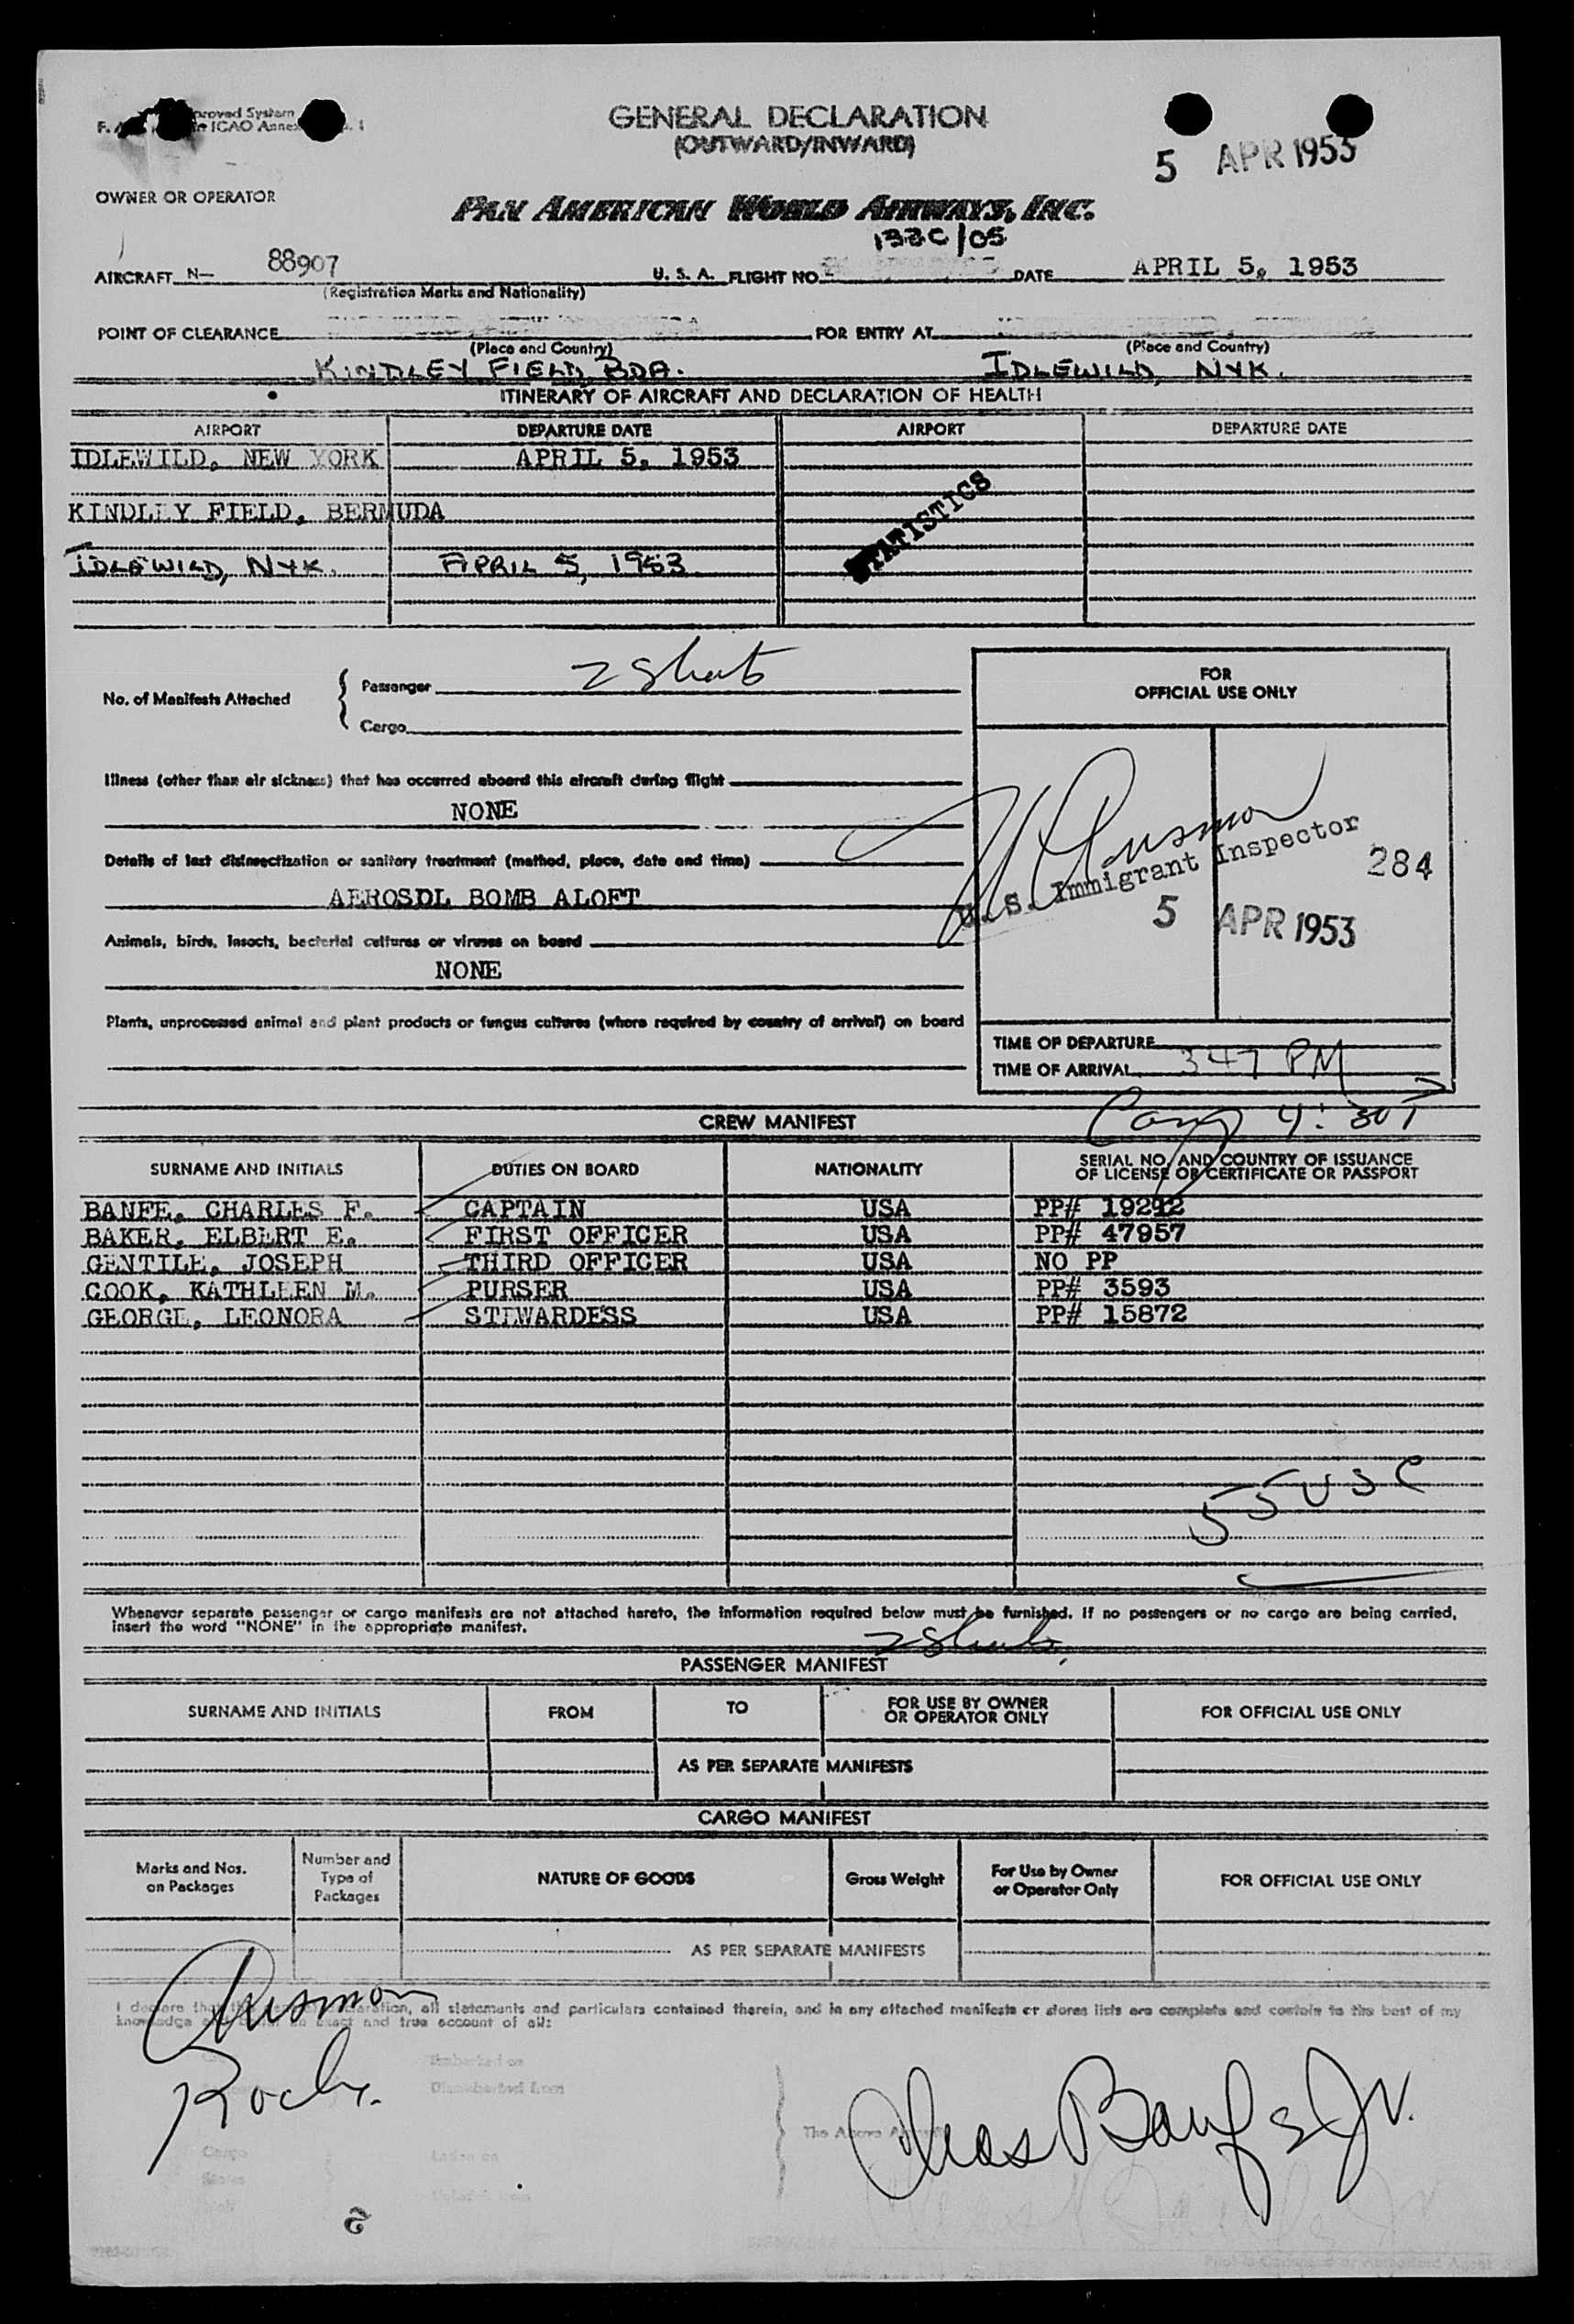 GENERAL DECLARATION
(OUTWARD/INWARD)
5 APR 1953
OWNER OR OPERATOR
PAN AMERICAN WORLD AIRWAYS, INC.
132C/05
AIRCRAFT N— 88907 U. S. A. FLIGHT NO. DATE APRIL 5, 1953
(Registration Marks and Nationality)
POINT OF CLEARANCE FOR ENTRY AT
(Place and Country) (Place and Country)
KINDLEY FIELD, BDA. IDLEWILD, NYK.
ITINERARY OF AIRCRAFT AND DECLARATION OF HEALTH
AIRPORT DEPARTURE DATE AIRPORT DEPARTURE DATE
IDLEWILD, NEW YORK APRIL 5, 1953
STATISTICS
KINDLEY FIELD, BERMUDA
IDLEWILD, NYK. APRIL 5, 1953
No. of Manifests Attached { Passenger 2 Sheets
Cargo
FOR
OFFICIAL USE ONLY
Illness (other than air sickness) that has occurred aboard this aircraft during flight
NONE
Details of last disinsectization or sanitary treatment (method, place, date and time)
AEROSOL BOMB ALOFT
U. S. Immigrant Inspector 284
5 APR 1953
Animals, birds, insects, bacterial cultures or viruses on board
NONE
Plants, unprocessed animal and plant products or fungus cultures (where required by country of arrival) on board
TIME OF DEPARTURE
TIME OF ARRIVAL 347 PM
4:30
CREW MANIFEST
SURNAME AND INITIALS DUTIES ON BOARD NATIONALITY SERIAL NO. AND COUNTRY OF ISSUANCE
OF LICENSE OR CERTIFICATE OR PASSPORT
BANFE, CHARLES F. CAPTAIN USA PP# 19292
BAKER, ELBERT E. FIRST OFFICER USA PP# 47957
GENTILE, JOSEPH THIRD OFFICER USA NO PP
COOK, KATHLEEN M. PURSER USA PP# 3593
GEORGE, LEONORA STEWARDESS USA PP# 15872
5 5 USC
Whenever separate passenger or cargo manifests are not attached hereto, the information required below must be furnished. If no passengers or no cargo are being carried,
insert the word "NONE" in the appropriate manifest.
2 Sheets
PASSENGER MANIFEST
SURNAME AND INITIALS FROM TO FOR USE BY OWNER
OR OPERATOR ONLY FOR OFFICIAL USE ONLY
AS PER SEPARATE MANIFESTS
CARGO MANIFEST
Marks and Nos.
on Packages Number and
Type of
Packages NATURE OF GOODS Gross Weight For Use by Owner
or Operator Only FOR OFFICIAL USE ONLY
AS PER SEPARATE MANIFESTS
I declare that all statements and particulars contained therein, and in any attached manifests or stores lists are complete and contain to the best of my
knowledge exact and true account of all:
Embarked on
Disembarked from
The Above
Chas Banfe Jr.
Cargo